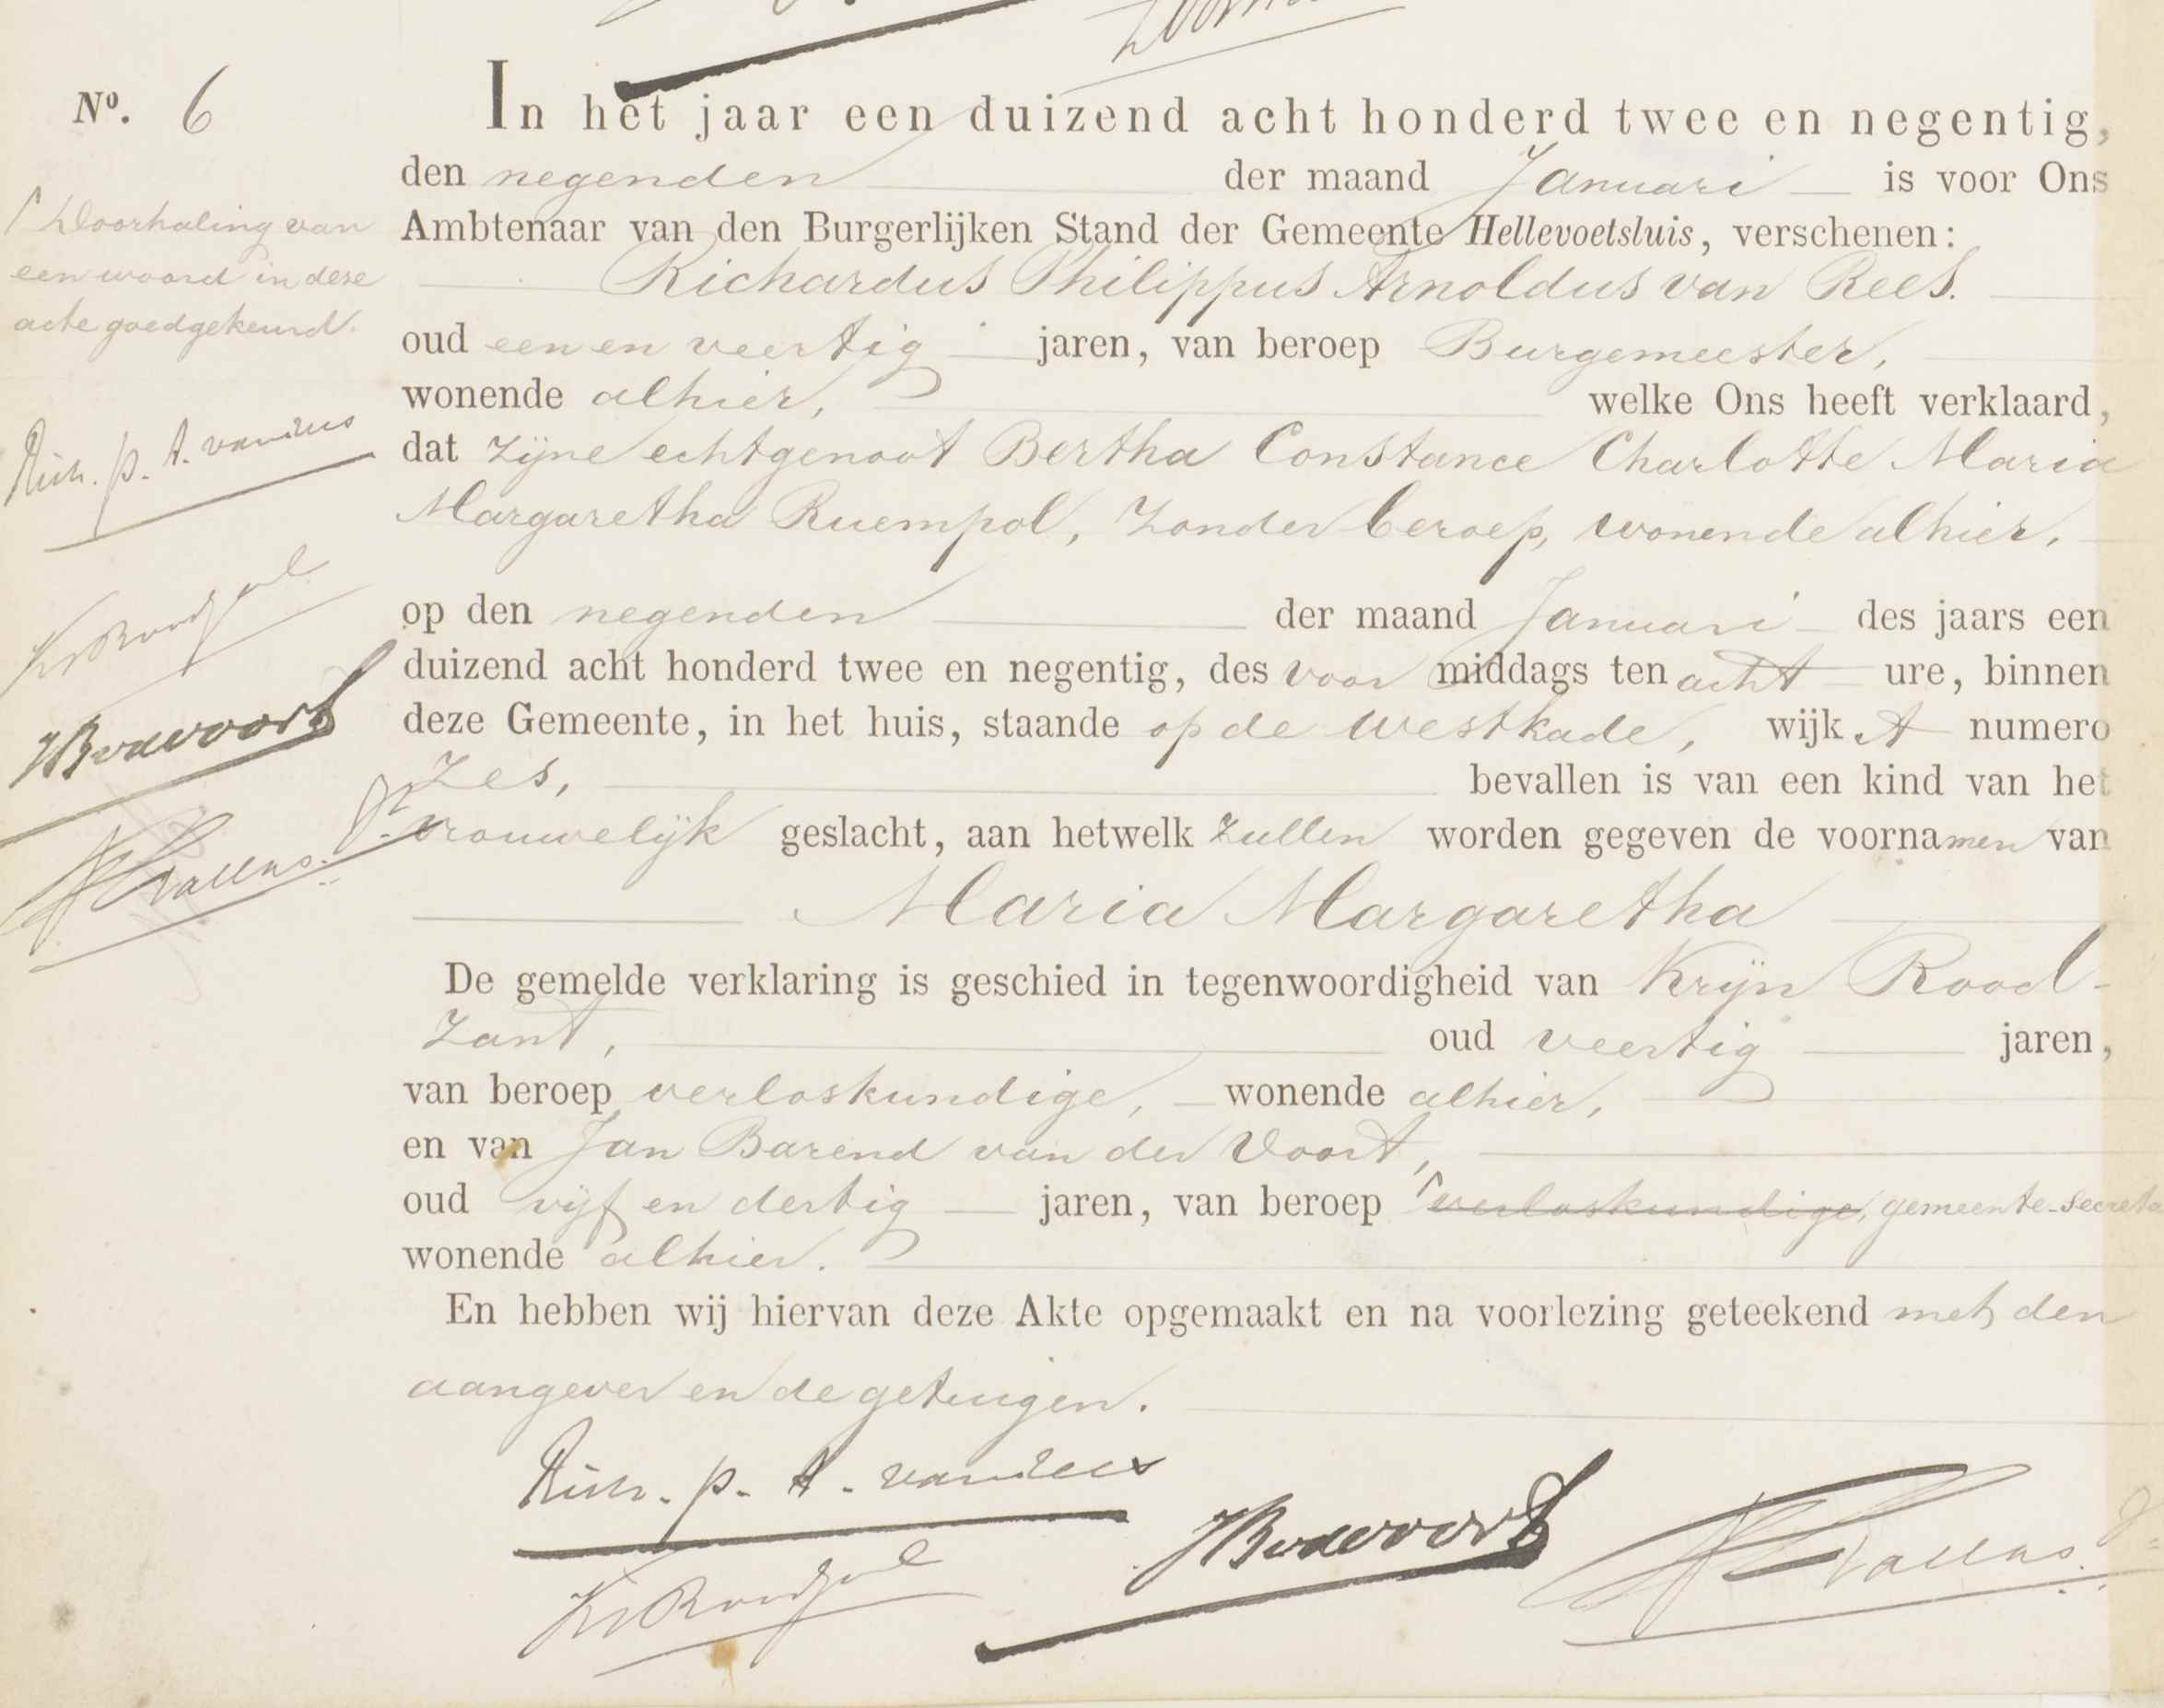 Nº. 6
In het jaar een duizend acht honderd twee en negentig,
den negenden der maand Januari is voor Ons
Ambtenaar van den Burgerlijken Stand der Gemeente Hellevoetsluis, verschenen:
Richardus Philippus Arnoldus van Rees.
oud een en veertig jaren, van beroep Burgemeester,
wonende alhier, welke Ons heeft verklaard,
dat zijne echtgenoot Bertha Constance Charlotte Maria
Margaretha Ruempol, zonder beroep, wonende alhier,
op den negenden der maand Januari des jaars een
duizend acht honderd twee en negentig, des voor middags ten acht ure, binnen
deze Gemeente, in het huis, staande op de Westkade, wijk A numero
zes, bevallen is van een kind van het
vrouwelijk geslacht, aan hetwelk zullen worden gegeven de voornamen van
Maria Margaretha
De gemelde verklaring is geschied in tegenwoordigheid van Krijn Rood-
zant, oud veertig jaren,
van beroep verloskundige, wonende alhier,
en van Jan Barend van der Voort,
oud vijf en dertig jaren, van beroep verloskundige, gemeente-secreta
wonende alhier.
En hebben wij hiervan deze Akte opgemaakt en na voorlezing geteekend met den
aangever en de getuigen.
Rich. P. A. van Rees
Doorhaling van
een woord in deze
acte goedgekeurd.
Rich. P. A. van Rees